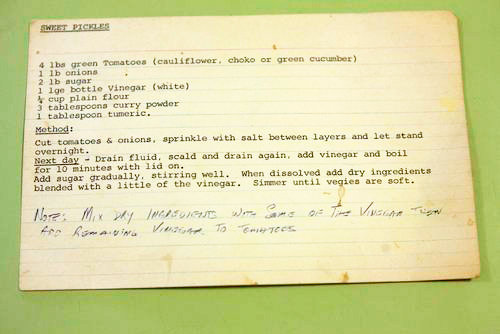 SWEET PICKLES
4 lbs green Tomatoes (cauliflower, choko or green cucumber)
1 lb onions
2 lb sugar
1 lge bottle Vinegar (white)
¼ cup plain flour
3 tablespoons curry powder
1 tablespoon tumeric.
Method:
Cut tomatoes & onions, sprinkle with salt between layers and let stand
overnight.
Next day - Drain fluid, scald and drain again, add vinegar and boil
for 10 minutes with lid on.
Add sugar gradually, stirring well. When dissolved add dry ingredients
blended with a little of the vinegar. Simmer until vegies are soft.
NOTE: MIX DRY INGREDIENTS WITH SOME OF THE VINEGAR THEN
ADD REMAINING VINEGAR TO TOMATOES